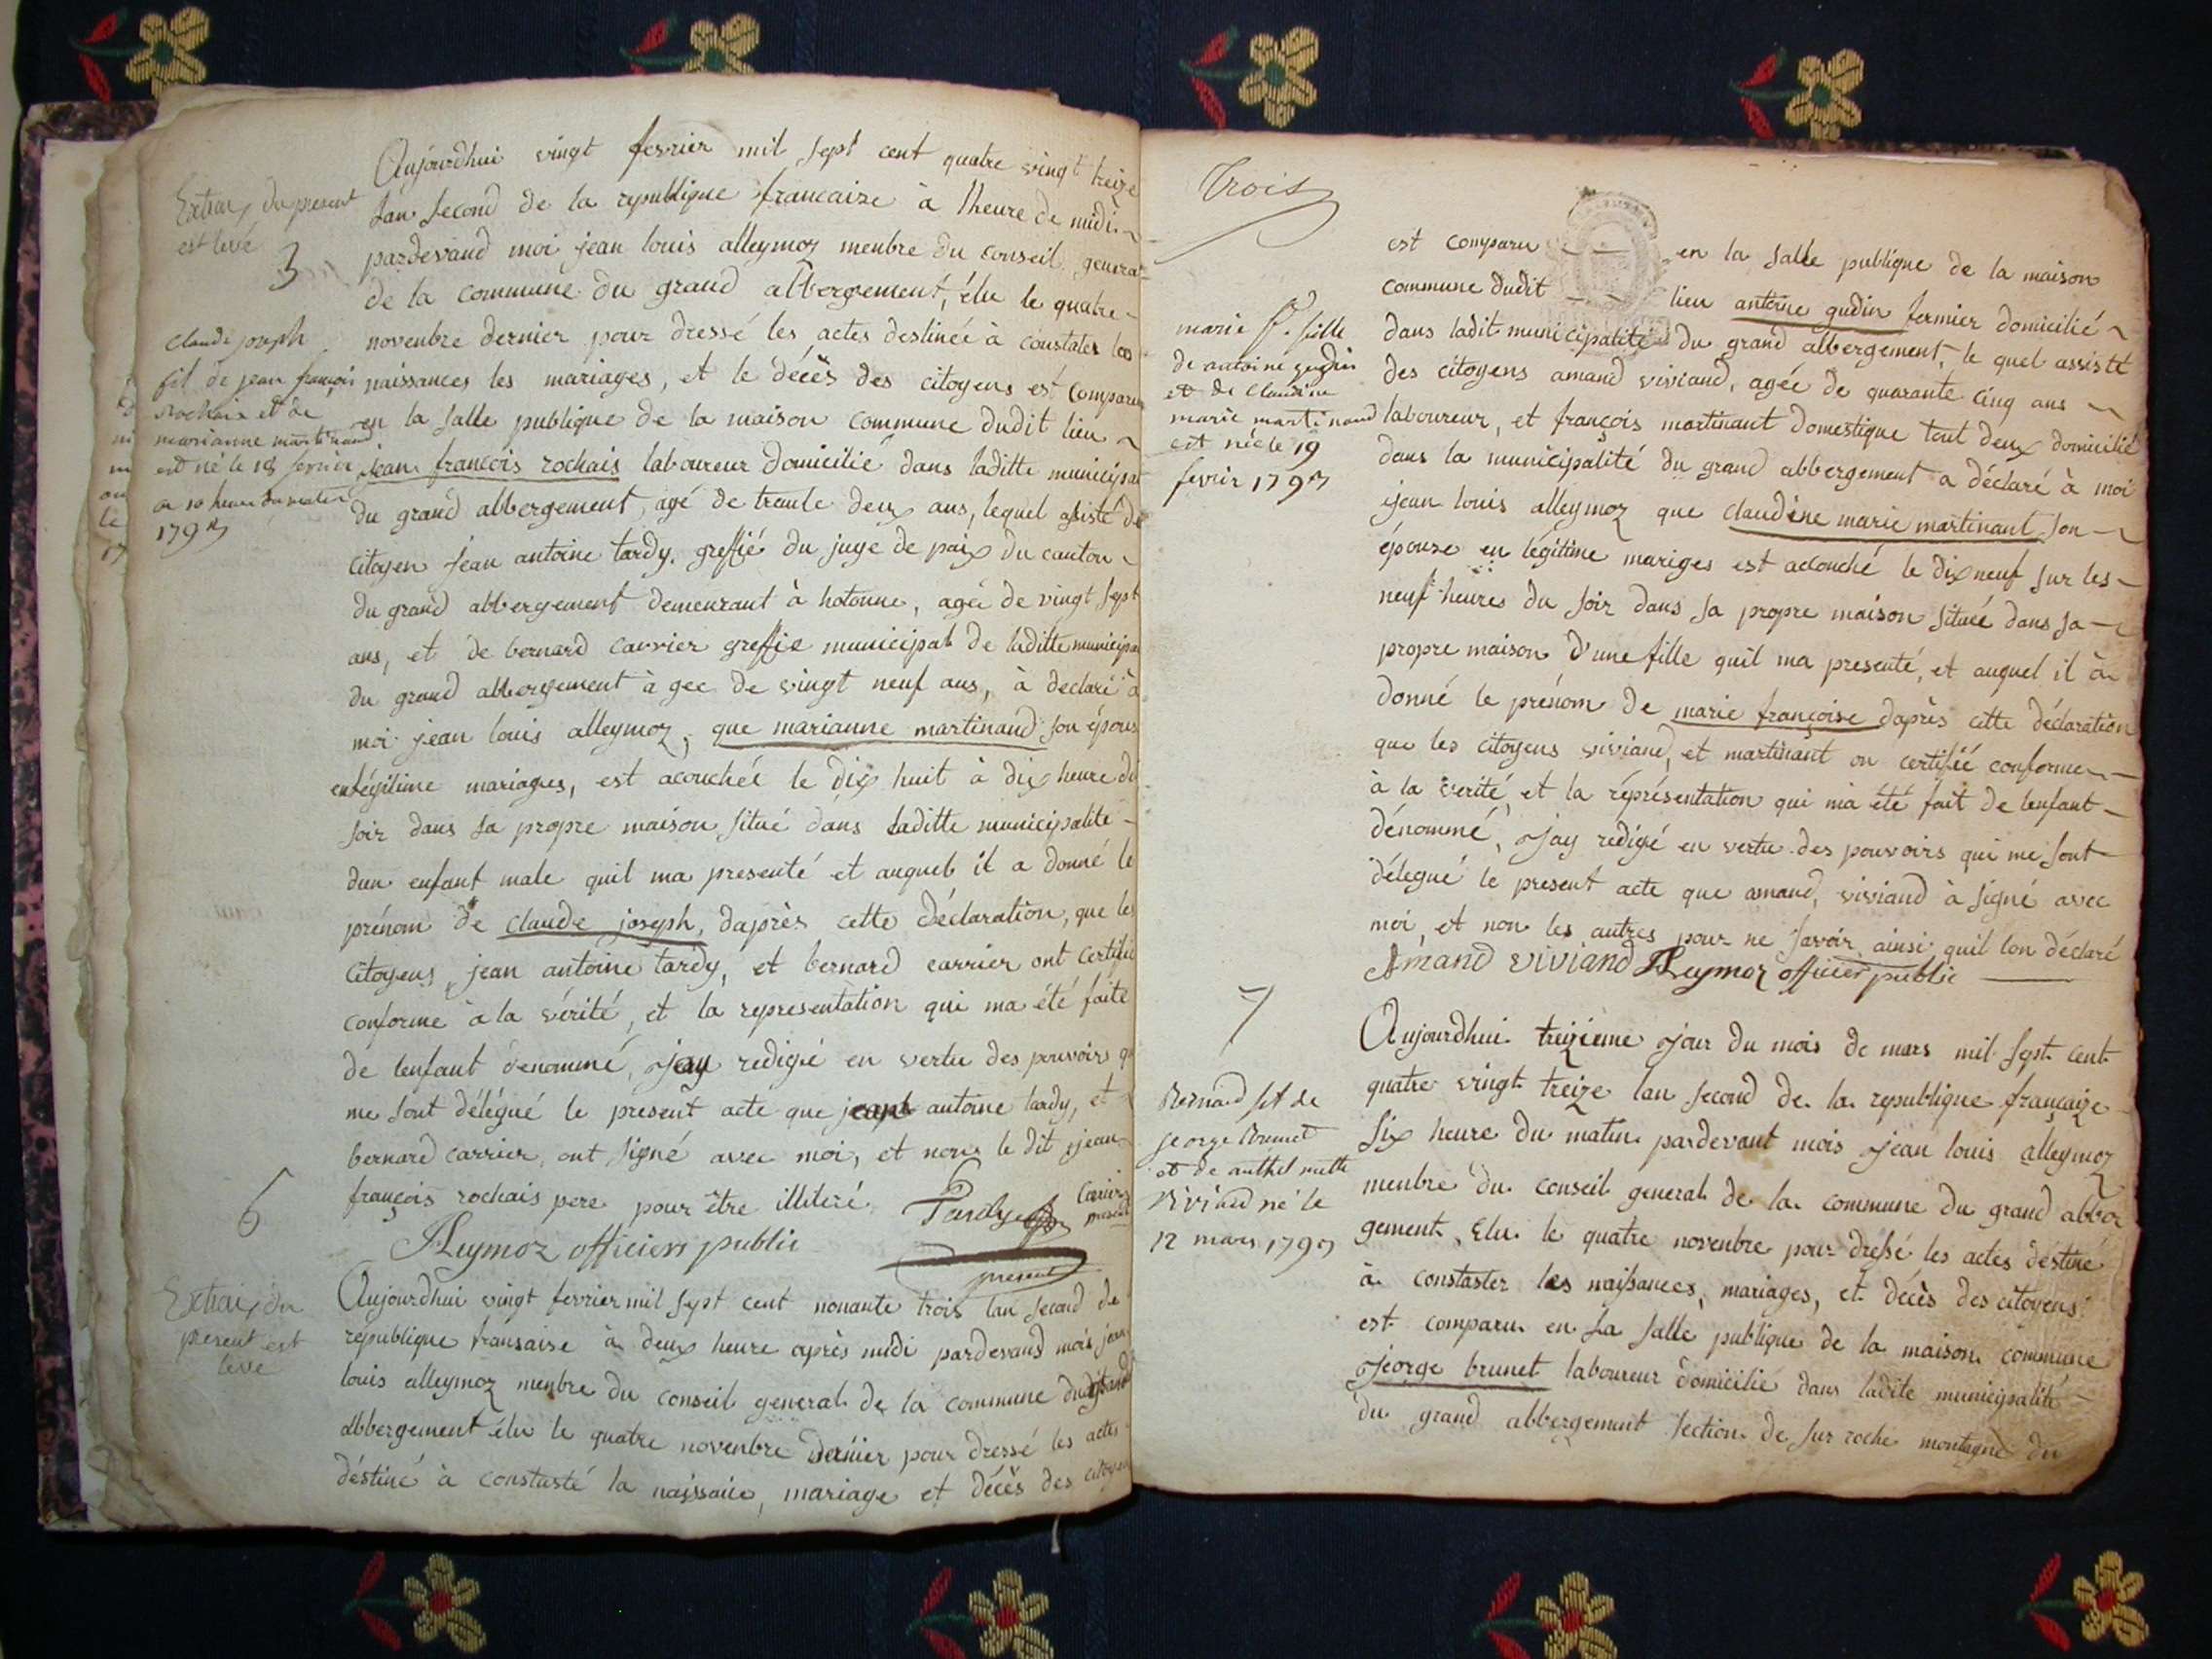 Aujourdhui vingt fevrier mil sept cent quatre vingt treize
lan second de la republique francaize à lheure de midi
pardevand moi jean louis alleymoz menbre du conseil general
de la commune du grand albergement, élu le quatre
novenbre dernier pour dressé les actes destinée à constater les
naissances les mariages, et le décès des citoyens est comparu
en la salle publique de la maison commune dudit lieu
jean françois rochais laboureur domicilié dans laditte municipal
du grand albergement, agé de trante deux ans, lequel assisté de
citoyen jean antoine tardy, greffié du juge de paix du canton
du grand abbergement demeurant à hotonne, agée de vingt sept
ans, et de bernard carrier greffie municipal de laditte municipa
du grand abbergement à gee de vingt neuf ans, à declaré à
moi jean louis alleymoz, que marianne martinand son épous
en légitime mariages, est acouchée le dix huit à dix heure du
soir dans sa propre maison situé dans laditte municipalité
dun enfant male quil ma presenté et auquel il a donné le
prénom de claude joseph, daprès cette déclaration, que les
citoyens jean antoine tardy, et bernard carrier ont certifié
conforme à la vérité, et la representation qui ma été faite
de lenfant dénommé, jay redigié en vertu des pouvoirs qu
me sont délégué le présent acte que jean antoine tardy, et
bernard carrier, ont signé avec moi, et non le dit jean
françois rochais pere pour être illiteré. Tardy
Carrier
present
Alleymoz officiers public
present
Aujourdhui vingt fevrier mil sept cent nonante trois lan second de
republique fransaise à deux heure après midi pardevand mois jean
louis alleymoz menbre du conseil general de la commune du grand
abbergement élu le quatre novenbre dernier pour dressé les actes
déstiné à constasté la naissance, mariage et décès des citoyen
Extrai du present
est levé
3
claude joseph
fil de jean françois
rochais et de
marianne martinand
est né le 18 fevrier
a 10 heure du matin
1793
6
Extrai du
present est
levé
Trois
est comparu en la salle publique de la maison
commune dudit lieu antoine gudin fermier domicilié
dans ladit municipalité du grand albergement, le quel assisté
des citoyens amand viviand, agée de quarante cinq ans
laboureur, et françois martinant domestique tout deux domicilié
dans la municipalité du grand abbergement a déclaré à moi
jean louis alleymoz que claudine marie martinant son
épouze en légitime mariges est acouché le dix neuf sur les
neuf heures du soir dans sa propre maison située dans sa
propre maison d'une fille quil ma presenté, et auquel il à
donné le prénom de marie françoise daprès cette déclaration
que les citoyens viviand, et martinant on certifié conforme
à la verité, et la réprésentation qui ma été fait de lenfant
dénommé, jay redigé en vertu des pouvoirs qui me sont
délegué le present acte que amand, viviand à signé avec
moi, et non les autres pour ne savoir ainsi quil lon déclaré
Amand viviand Alleymoz officier public
Aujourdhui treizieme jour du mois de mars mil sept cent
quatre vingt treize lan second de la republique françaize
six heure du matin pardevant mois jean louis alleymoz
menbre du conseil general de la commune du grand abber
gement, élu le quatre novenbre pour dressé les actes déstiné
à constaster les naissances, mariages, et décès des citoyens
est comparu en la salle publique de la maison commune
george brunet laboureur domicilié dans ladite municipalité
du grand abbergement section de sur roche montagne du
marie f. fille
de antoine gudin
et de claudine
marie martinand
est née le 19
fevrir 1793
7
Bernard fil de
george Brunet
et de anthelmette
viviand né le
12 mars 1793